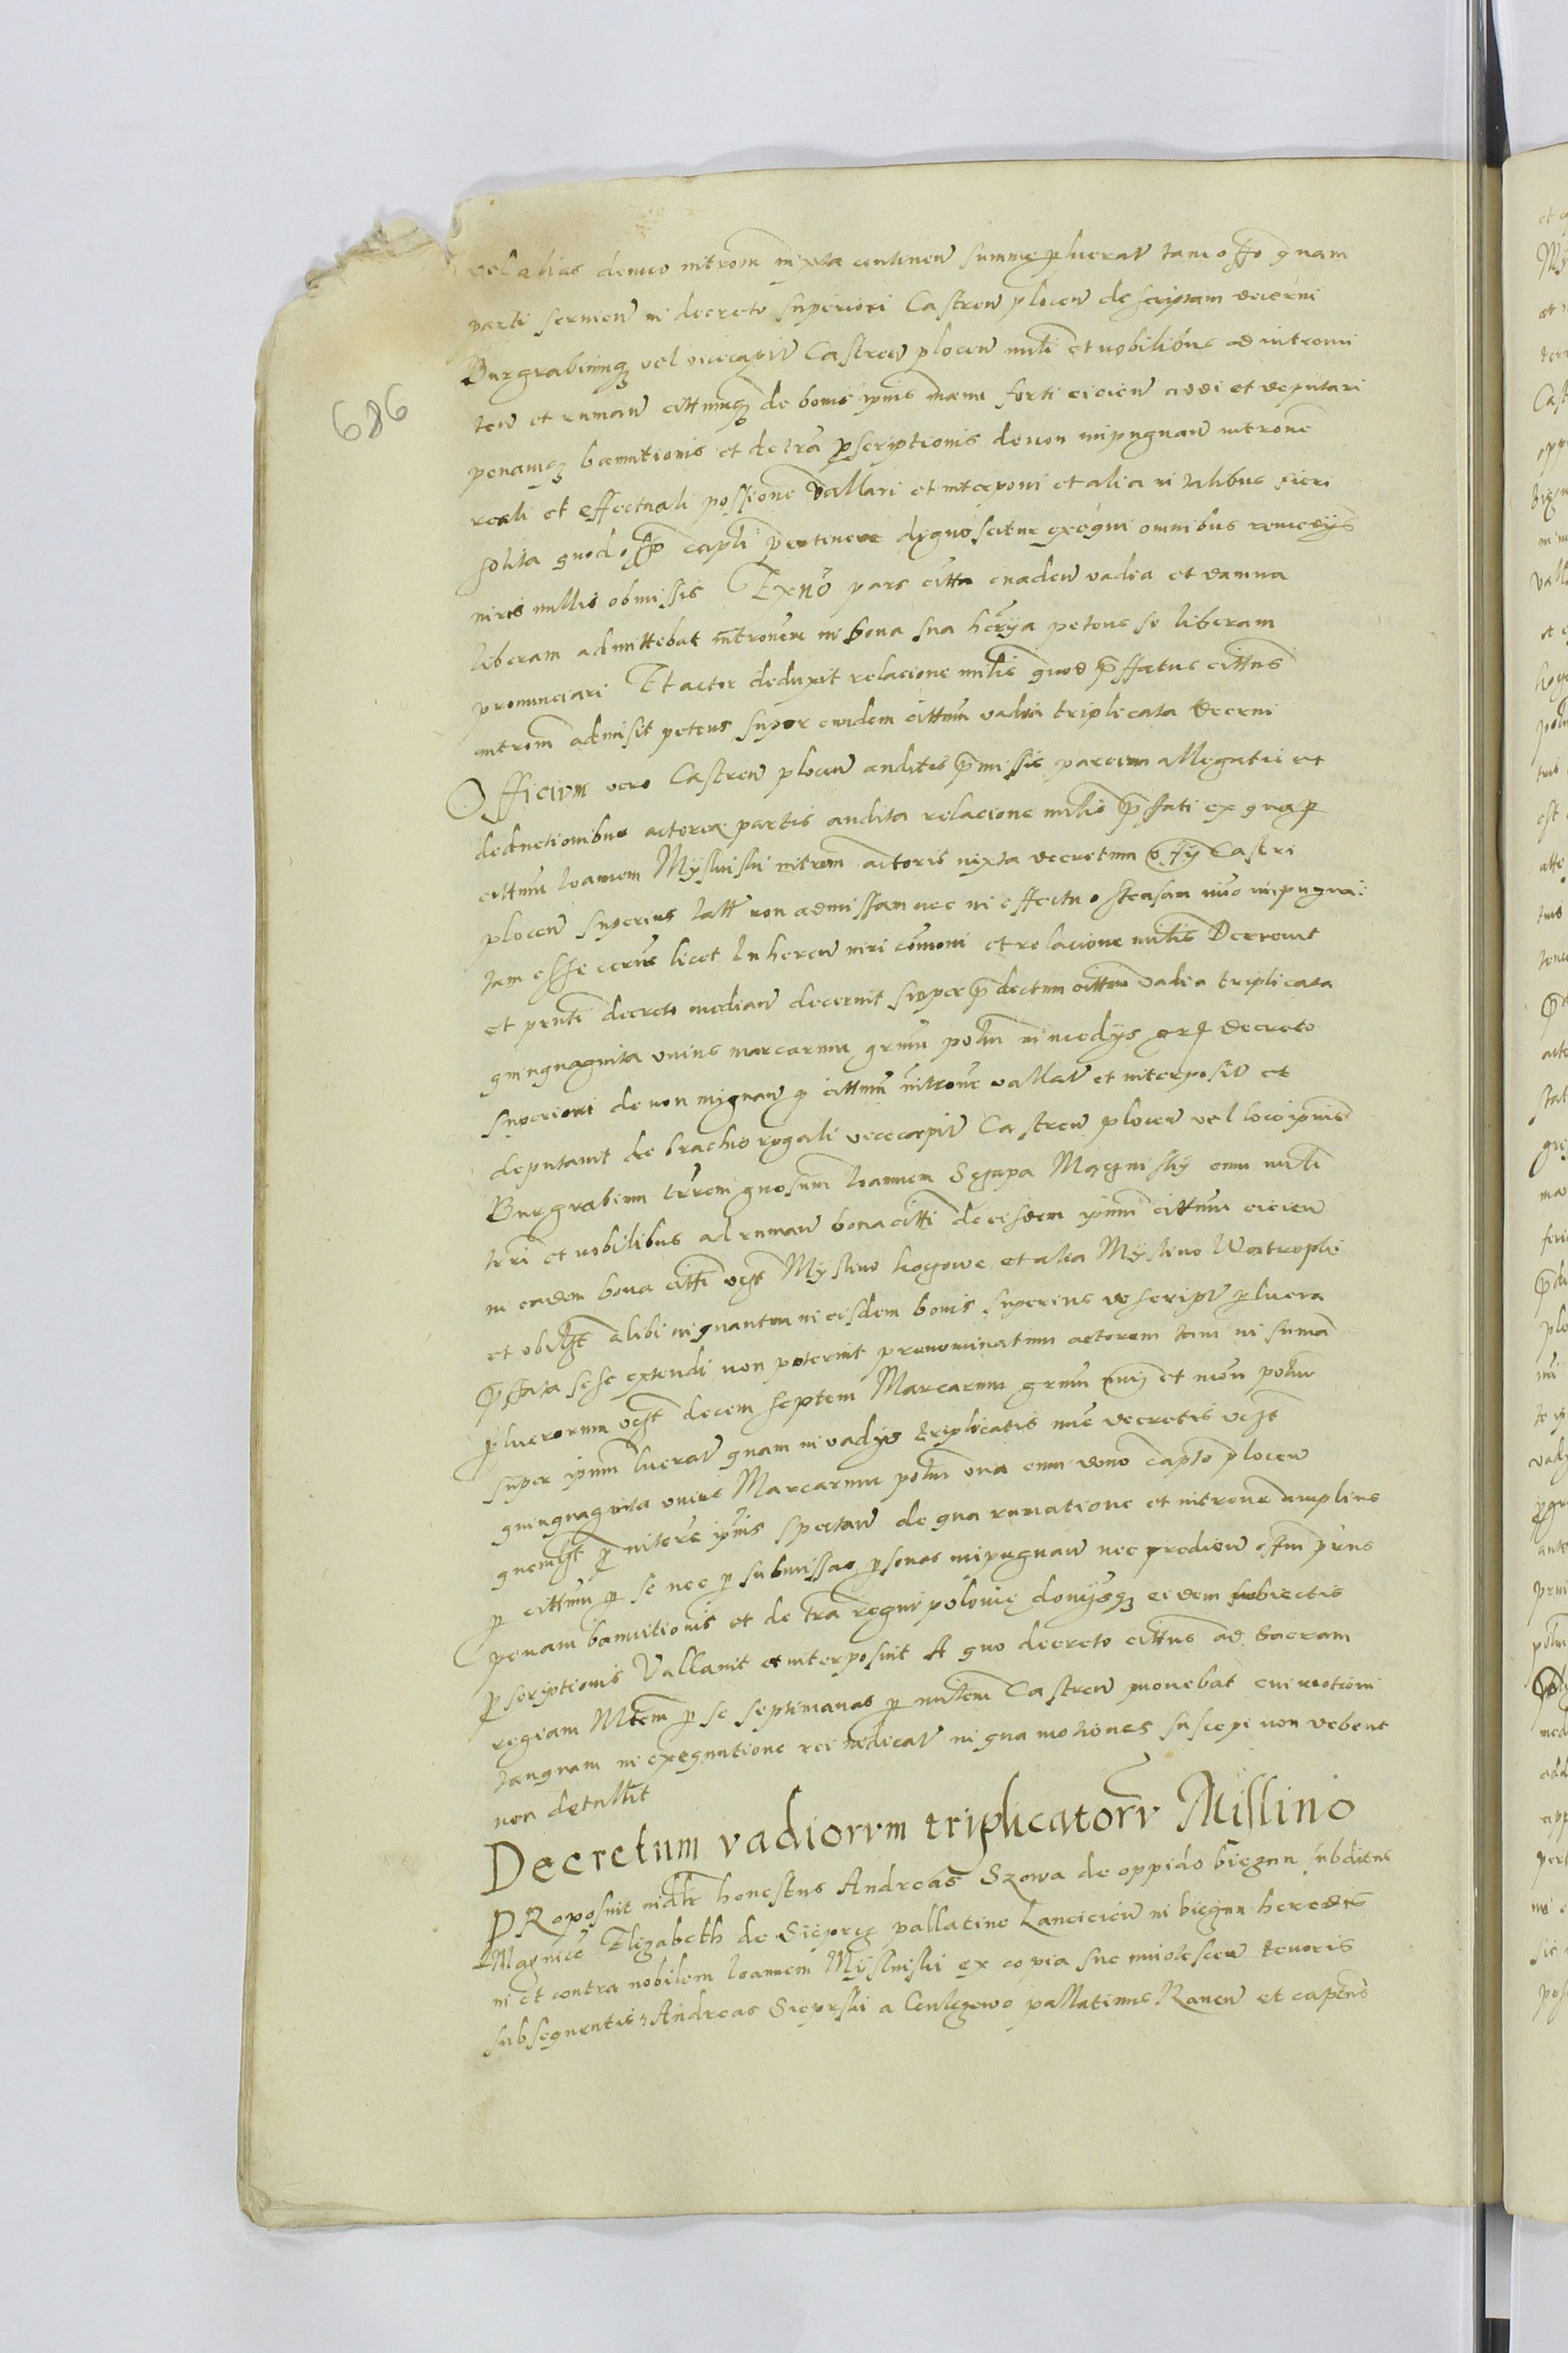 vel alias denuo introm iuxta continen summe p lucrat tam offo quam
parti servien in decreto superiori Castren plocen descriptam decerni
Burgrabiumq vel vicecapit Castren plocen mti et nobilibus ad intromi
ten et ruman cittumq de bonis ipius manu forti eicien addi et deputari
penamq bannitionis et de tra pscriptionis de non impugnan introne
reali et effectuali possione vallari et interponi et alia in talibus fieri
solita quod offo captli pertinere dignoscitur exequi omnibus remedys
iuris nullis obmissis Ex no pars citta evaden vadia et damna
liberam admittebat intronem in bona sua herya petens se liberam
pronunciari Et actor deduxit relacione mtlis quod pffatus cittus
introm admisit petens super eundem cittum vadia triplicata decerni
Officivm vero Castren plocen auditis pmissis parcium allegatis et
deductionibus actorea partis audita relacione mtlis pffati ex qua p
cittum Ioannem Mysliuski introm actoris iuxta decretum offy Castri
plocen superius latt non admissam nec in effectu ostensam imo impugna
tam esse cerne licet Inheren iuri comoni et relacione mtlis Decrevit
et pnti decreto median decernit super pdictum cittum vadia triplicata
quinquaginta unius marcarum grum polm in medys ex decreto
superiori de non impugnan p cittum introne vallat et interposit et
deputavit de brachio regali vicecapit Castren plocen vel loco ipius
Burgrabium trrem gnosum Ioannem Szczapa Magnisky cum mtli
tri et nobilibus ad ruman bona citti de eisdem ipum cittum eicien
in eadem bona citti vczt Myslino kogowe et alia Myslino Wostropki
et ubilzt alibi inquantum in eisdem bonis superius descript p lucra
pffata sese extendi non poterint prenominatum actorem tam in suma
p lucrorum vczt decem septem Marcarum grum et mon polm
super ipum lucrat quam in vadys triplicatis nuc decretis vczt
quinquaginta unius Marcarum polm una cum dono capto plocen
quemlzt p nitore ipius spectan de qua rumatione et introne amplius
p cittum p se nec p submissas psonas impugnan nec predien estm prius
penam bannitionis et de tra regni polonie donysq eidem subiectis
pscriptionis Vallavit et interposuit A quo decreto cittus ad sacram
regiam Mtem p se septimanas p mtlem Castren monebat cui motioni
tanquam in exequutione rei iudicat in qua motiones suscipi non debent
non detullit
Decretum vadiorvm triplicatorv Mislino
PRoposuit iudtr honestus Andreas Szowa de oppido biezun subditus
Magnice Elizabeth de Sieprcz pallatine Lancicien in biezun heredis
in et contra nobilem Ioannem Mysliuski ex copia sue inniolescen tenoris
subsequentis Andreas Sieprski a Culczewo pallatinus Raven et captns
686